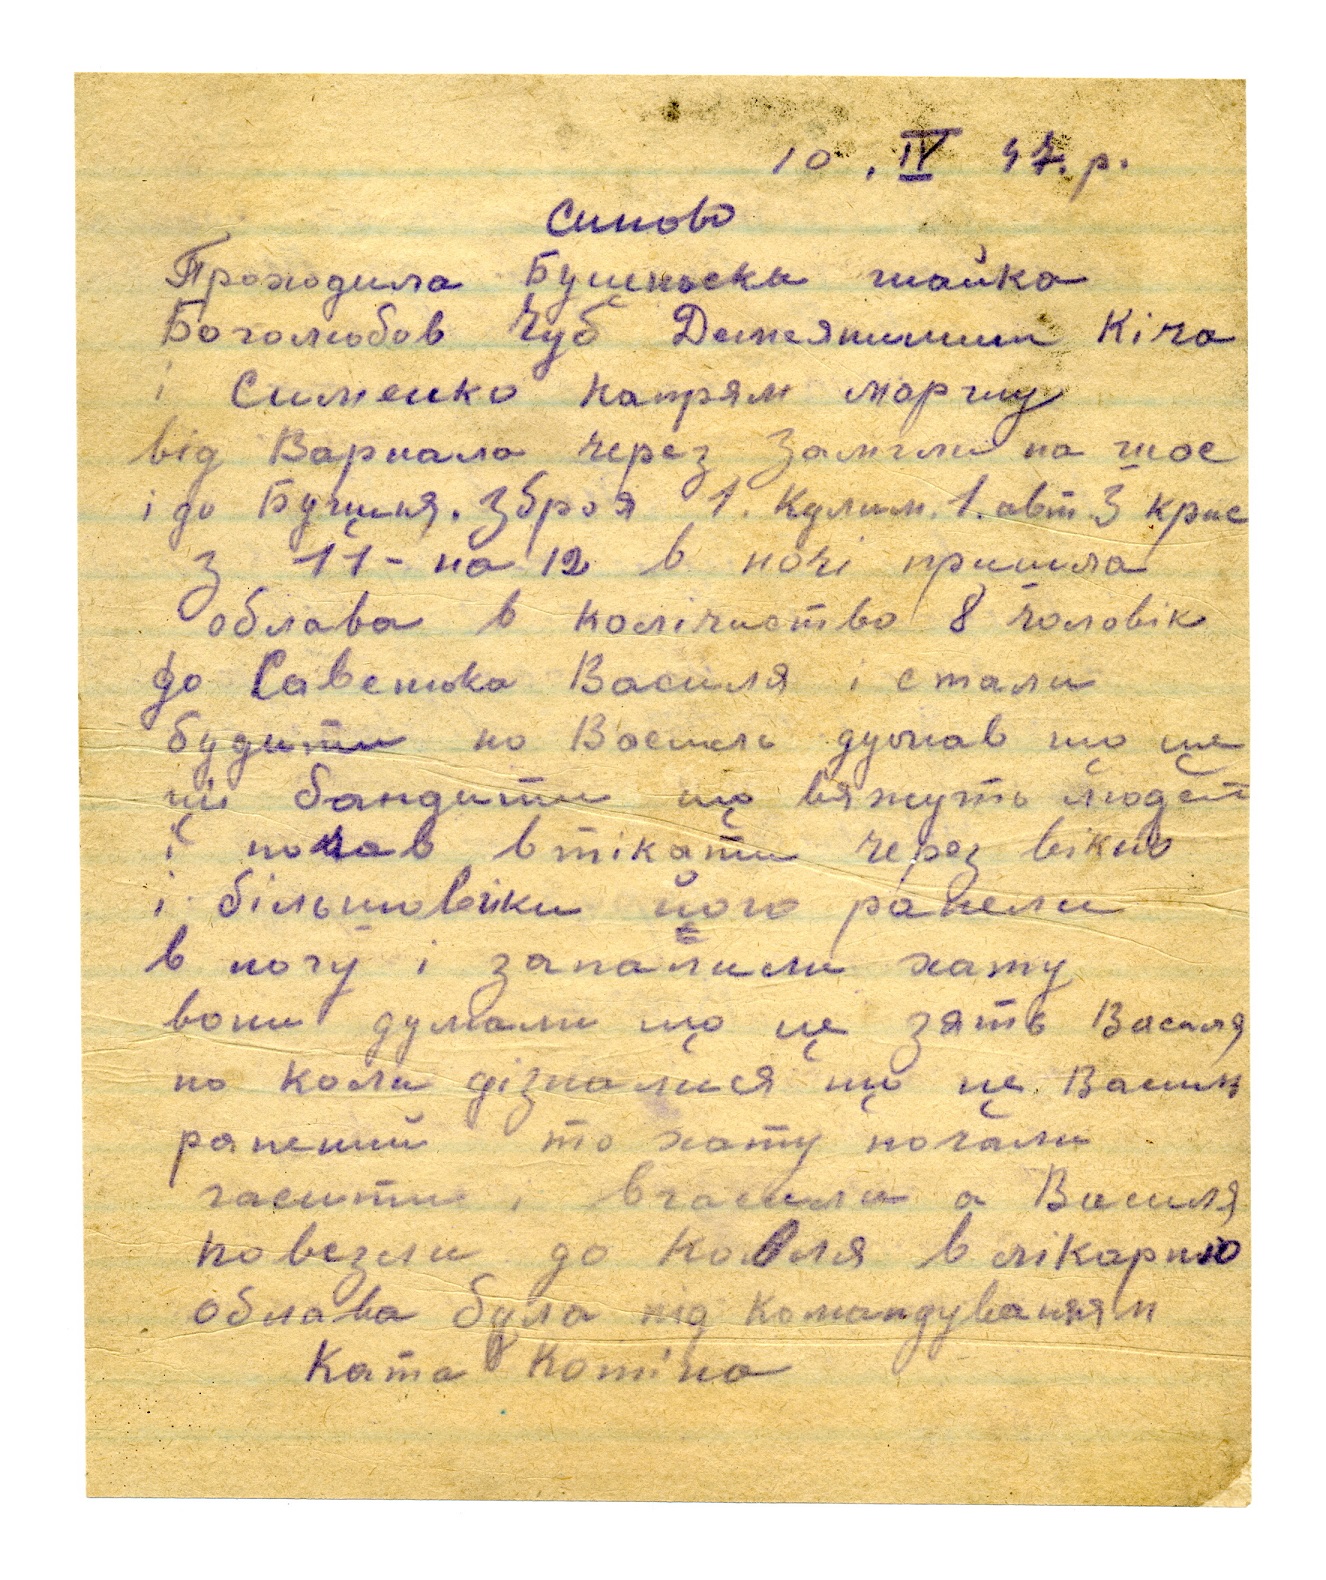 10. IV 47. р.
Синово
Проходила Буцинська шайка
Боголюбов Чуб Кіча
і Сименко напрям маршу
від Варнала через на шосе
і до Буциня. Зброя 1. кулим. 1. авт. 3 кріс
з 11 - на 12 в ночі пришла
облава в колічиство 8 чоловік
до Савенюка Василя і стали
будити но Василь думав що це
ці бандити що вяжуть людей
і почав втікати через вікно
і більшовики його ранели
в ногу і запалили хату
вони думали що це зять Василя
но коли дізналися що це Василь
ранений то хату почали
гасити і вгасили а Василя
повезли до Ковля в лікарню
облава була під командуваням
Ката Котіна